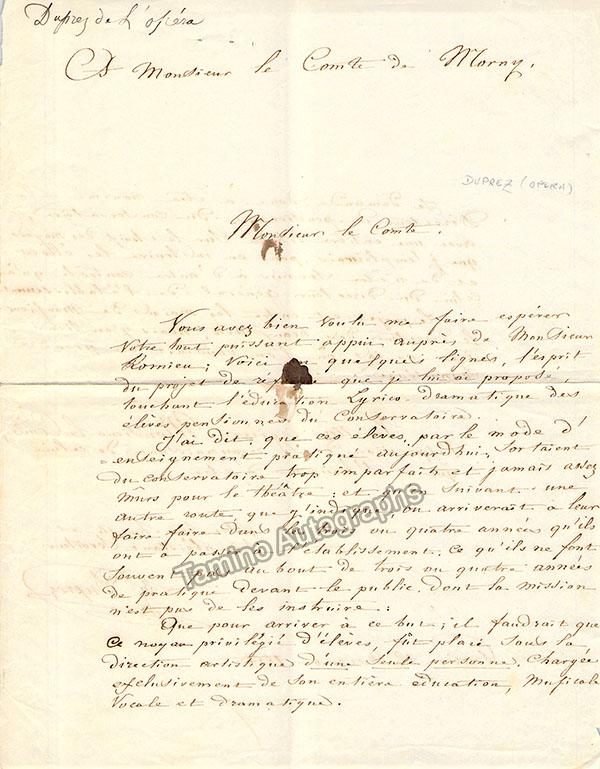 Duprez de L'opéra
A Monsieur le Comte de Morny.
DUPREZ (OPERA)
Monsieur le Comte.
Vous avez bien voulu me faire espérer
Votre tout puissant appui auprès de Monsieur
Romieu; Voici en quelques lignes, l'esprit
du projet de que je lui ai proposé,
touchant l'éducation Lyrico-Dramatique des
élèves pensionnés du Conservatoire.
J'ai dit, que ces élèves, par le mode d'
enseignement pratiqué aujourd'hui, sortaient
du conservatoire trop imparfaits et jamais assez
murs pour le théâtre: et que suivant une
autre route que j'indique, on arriverait à leur
faire faire dans les trois ou quatre années qu'ils
ont à passer à l'établissement, ce qu'ils ne font
souvent pas au bout de trois ou quatre années
de pratique devant le public, dont la mission
n'est pas de les instruire:
Que pour arriver à ce but; il faudrait que
ce noyau privilégié d'élèves, fût placé sous la
direction artistique d'une seule personne, chargée
exclusivement de son entière education, Musicale
Vocale et dramatique.
Tamino Autographs